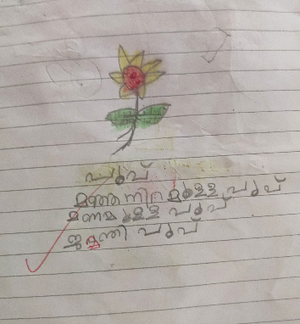 പൂവ്
മഞ്ഞനിറമുള്ള പൂവ്
മണമുള്ള പൂവ്
ജമന്തി പൂവ്